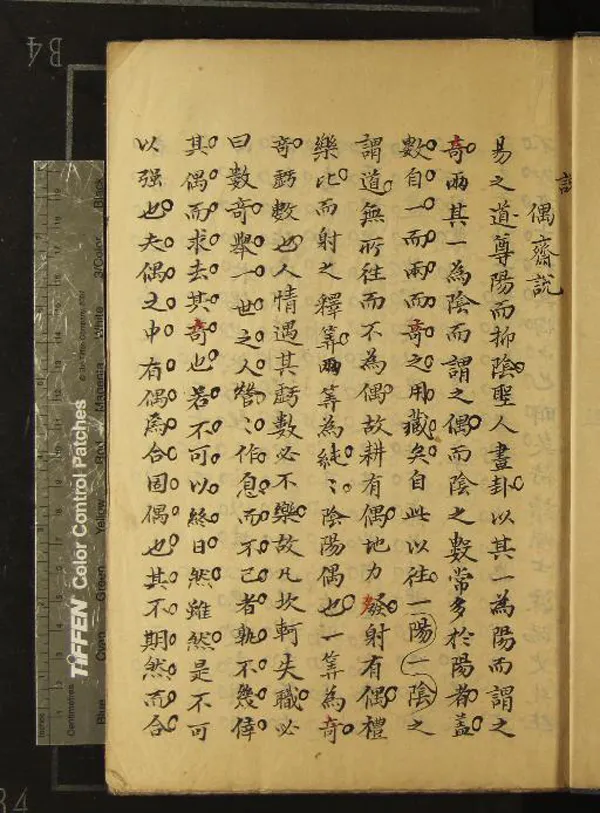 說
偶齋說
易之道尊陽而抑陰聖人畫卦以其一為陽而謂之
奇兩其一為陰而謂之偶而陰之數常多於陽者蓋
數自一而兩而奇之用藏矣自此以往一陽一陰之
謂道無所往而不為偶故耕有偶地力發射有偶禮
樂比而射之釋筭兩筭為純〻陰陽偶也一筭為奇
奇虧數也人情遇其虧數必不樂故凡坎軻失職必
曰數奇舉一世之人營〻作息而不已者孰不幾倖
其偶而求去其奇也若不可以終日然雖然是不可
以强也夫偶之中有偶爲合固偶也其不期然而合
TIFFEN Color Control Patches
Blue Cyan Green Yellow Red Magenta White 3/Color Black
Centimetres
Inches
B4